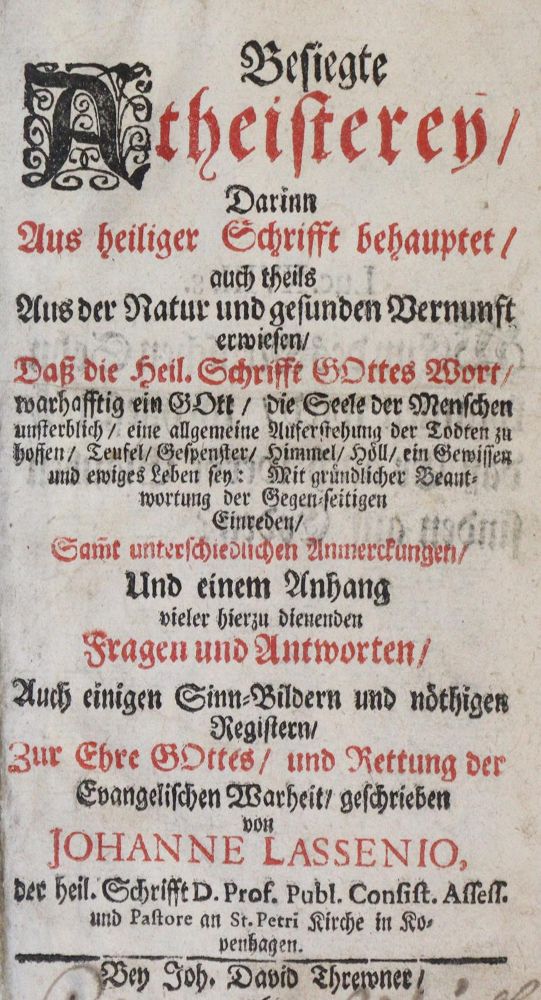 Besiegte
Atheisterey/
Darinn
Aus heiliger Schrifft behauptet/
auch theils
Aus der Natur und gesunden Vernunft
erwiesen/
Daß die Heil. Schrifft GOttes Wort/
warhafftig ein GOtt/ die Seele der Menschen
unsterblich/ eine allgemeine Auferstehung der Todten zu
hoffen/ Teufel/ Gespenster/ Himmel/ Höll/ ein Gewissen
und ewiges Leben sey: Mit gründlicher Beant-
wortung der Gegen-seitigen
Einreden/
Sam̄t unterschiedlichen Anmerckungen/
Und einem Anhang
vieler hierzu dienenden
Fragen und Antworten/
Auch einigen Sinn-Bildern und nöthigen
Registern/
Zur Ehre GOttes/ und Rettung der
Evangelischen Warheit/ geschrieben
von
JOHANNE LASSENIO,
der heil. Schrifft D. Prof. Publ. Consist. Assess.
und Pastore an St. Petri Kirche in Ko-
penhagen.
Bey Joh. David Threwner/